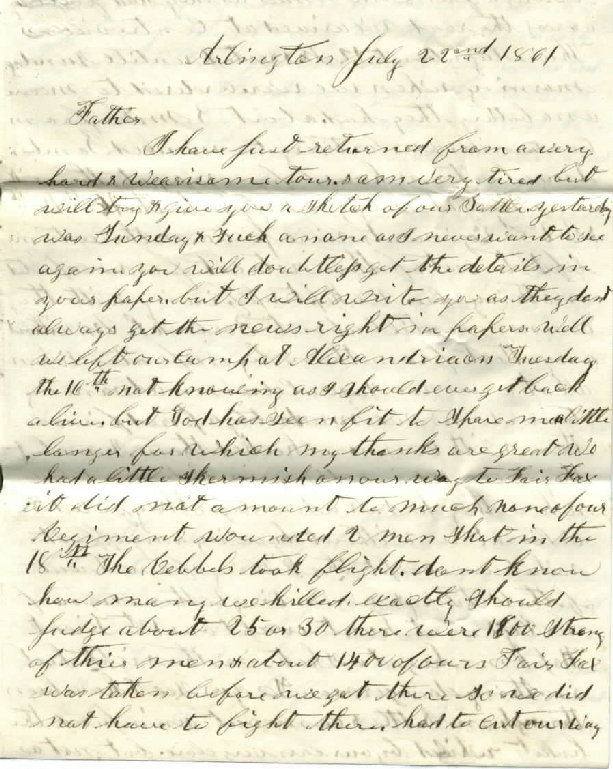 Arlington July 22nd 1861
Father
I have just returned from a very
hard & wearisome tour & am very tired but
will try & give you a sketch of our Battle yesterday
was Sunday & Such a one as I never want to see
again you will doubtless get the details in
your paper but I will write you as they dont
always get the news right in papers well
we left our Camp at Alexandria on Tuesday
the 16th not knowing as I should ever get back
alive but God has seen fit to Spare me a little
longer for which my thanks are great We
had a little Skermish on our way to Fair Fax
it did not amount to much none of our
Regiment wounded 2 men Shot in the
18th The Rebbels took flight. dont know
how many we killed exactly Should
judge about 25 or 30 there were 1800 Strong
of their men & about 1400 of ours Fair Fax
was taken before we got there So we did
not have to fight there had to cut our way